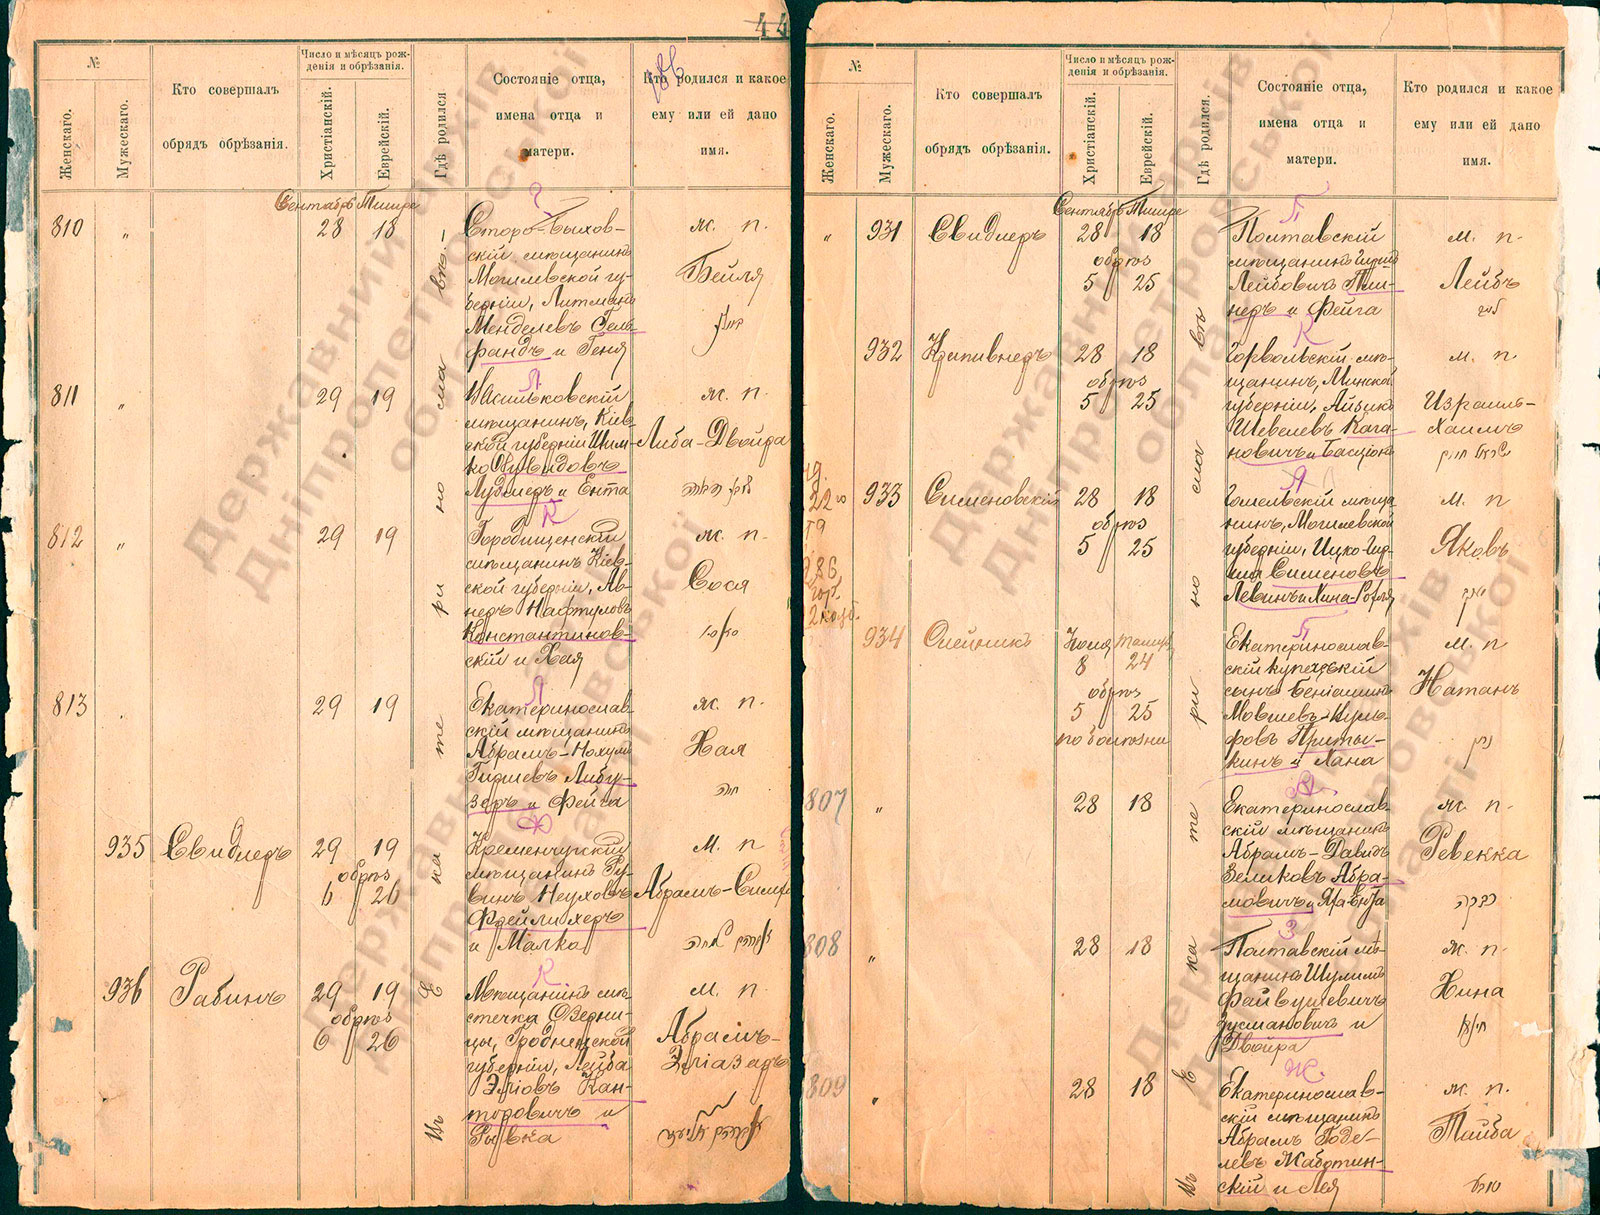 44
№
Женскаго.
Мужескаго.
Кто совершалъ
обрядъ обрѣзанія.
Число и мѣсяцъ рож-
денія и обрѣзанія.
Христіанскій.
Еврейскій.
Гдѣ родился
Состояніе отца,
имена отца и
матери.
Кто родился и какое
ему или ей дано
имя.
Сентябрь Тишре
810 „ 28 18
Старо-Быхов-
скій мѣщанинъ
Могилевской гу-
берніи, Литманъ
Менделевъ Гель-
фандъ и Геня
ж. п.
Бейля
811 „ 29 19
Васильковскій
мѣщанинъ, Кіев-
ской губерніи Шим-
ко Овшидовъ
Лудмеръ и Ента
ж. п.
Либа-Двойра
812 „ 29 19
Городищенскій
мѣщанинъ Кіев-
ской губерніи, Ав-
неръ Нафтуловъ
Константинов-
скій и Хая
ж. п.
Сося
813 29 19
Екатеринослав-
скій мѣщанинъ
Абрамъ-Нохумъ
Гиршевъ Либу-
зеръ и Фейга
ж. п.
Хая
חיה
935 Свидлеръ 29 19
обрѣз
6 26
Кременчугскій
мѣщанинъ Ру-
винъ Неуховъ
Фрейлихеръ
и Малка
м. п
Абрамъ-Симха
אברהם שמחה
936 Рабинъ 29 19
обрѣз
6 26
Мѣщанинъ мѣ-
стечка Озерни-
цы, Гродненской
губерніи, Лейба
Эліовъ Кан-
торовичъ и
Рывка
м. п.
Абрамъ-
Эліазаръ
אברהם אליעזר
Въ Екатеринославѣ
№
Женскаго.
Мужескаго.
Кто совершалъ
обрядъ обрѣзанія.
Число и мѣсяцъ рож-
денія и обрѣзанія.
Христіанскій.
Еврейскій.
Гдѣ родился.
Состояніе отца,
имена отца и
матери.
Кто родился и какое
ему или ей дано
имя.
Сентябрь Тишре
„ 931 Свидлеръ 28 18
обрѣз
5 25
Полтавскій
мѣщанинъ Гирша
Лейбовичъ Пи-
неръ и Фейга
м. п.
Лейбъ
ליב
932 Крапивнеръ 28 18
обрѣз
5 25
Горвольскій мѣ-
щанинъ, Минской
губерніи, Айзикъ
Шевелевъ Кага-
новичъ и Басціонъ
м. п
Израиль-
Хаимъ
ישראל חיים
933 Сименовскій 28 18
обрѣз
5 25
Гомельскій мѣща-
нинъ, Могилевской
губерніи, Ицко-Гир-
Сименовъ
Левинъ и Хина-Рохля
м. п
Яковъ
יעקב
934 Олейникъ
8 24
обрѣз
5 25
по болѣзни
Екатеринослав-
скій купеческій
сынъ Беніаминъ
Мовшевъ-Нуль-
фовъ Приты-
кинъ и Хана
м. п
Натанъ
נתן
807 „ 28 18
Екатеринослав-
скій мѣщанинъ
Абрамъ-Давидъ
Зеликовъ Абра-
мовичъ и
ж. п.
Ревекка
רבקה
808 „ 28 18
Полтавскій мѣ-
щанинъ Шулимъ
Файвушевичъ
Зусмановичъ и
Двойра
ж. п
Хина
809 „ 28 18
Екатеринослав-
скій мѣщанинъ
Абрамъ Годе-
левъ Жаботин-
скій и Лея
ж. п.
Тайба
טויבא
Въ Екатеринославѣ
Державний архів
Дніпропетровської області